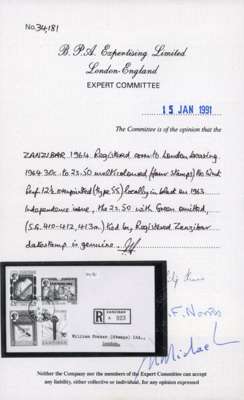 No. 34,181
B. P. A. Expertising Limited
London-England
EXPERT COMMITTEE
15 JAN 1991
The Committee is of the opinion that the
ZANZIBAR 1964 Registered cover to London bearing
1964 30c. to 2s.50 multicoloured (four stamps) No Wmk
Perf 12½ overprinted (type 55) locally in black on 1963
Independence issue, the 2s.50 with Green omitted,
(S.G. 410-412, 413m) tied by Registered Zanzibar
datestamp is genuine
R
ZANZIBAR
323
William Fraser (Stamps) Ltd.,
London.
Neither the Company nor the members of the Expert Committee can accept
any liability, either collective or individual, for any opinion expressed